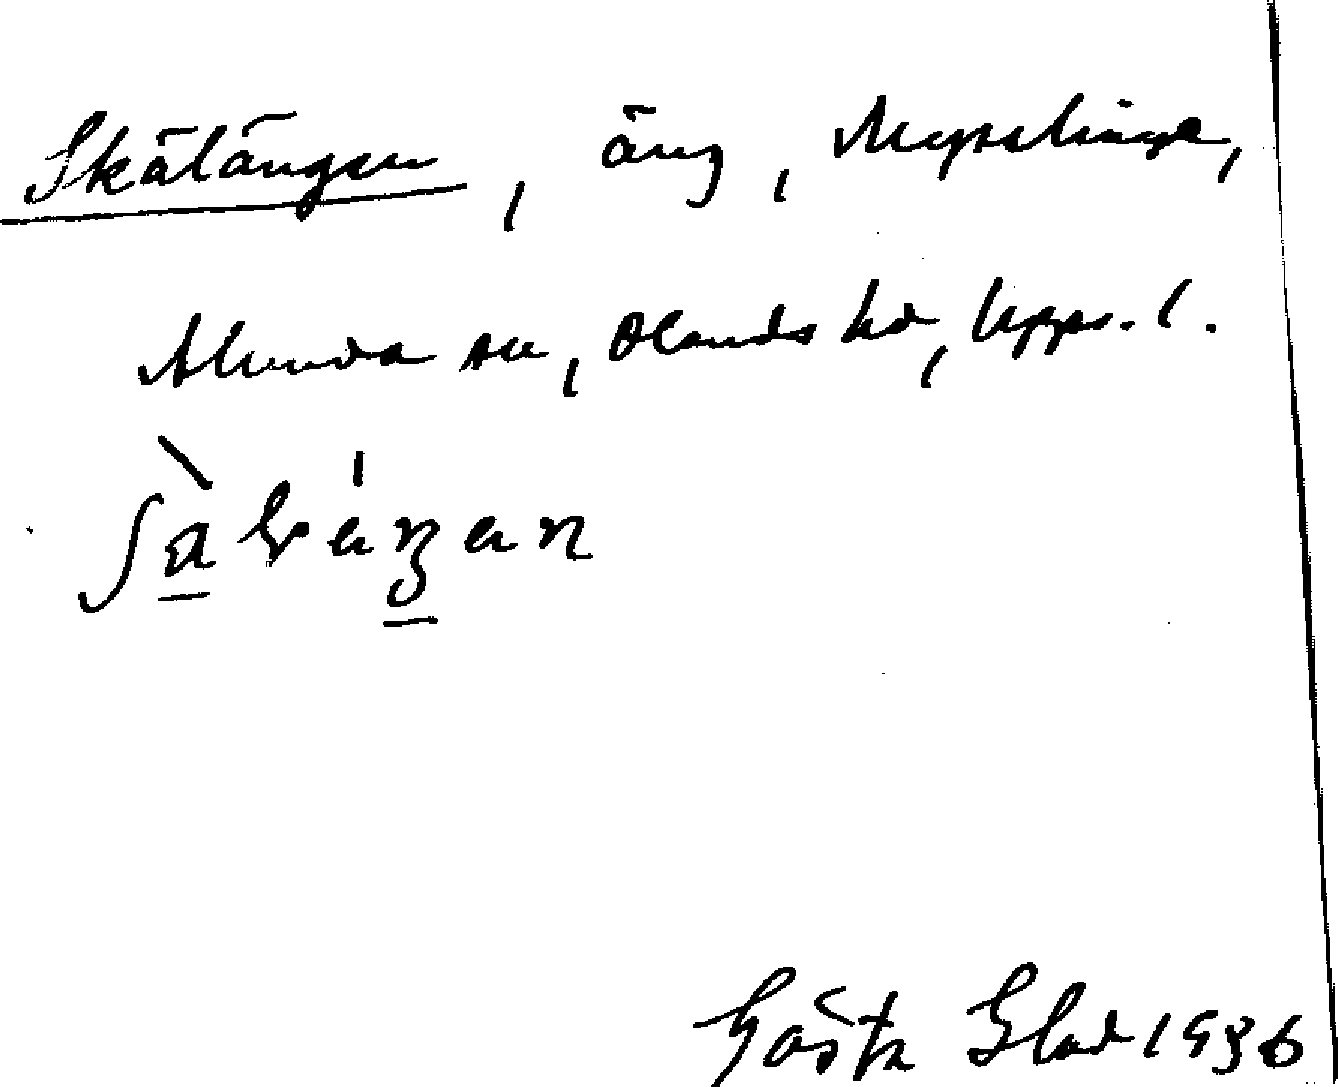 Skälängen, äng, Mysslinge,
Alunda sn, Olands hd, Upps. l.
Gösta Glad 1936